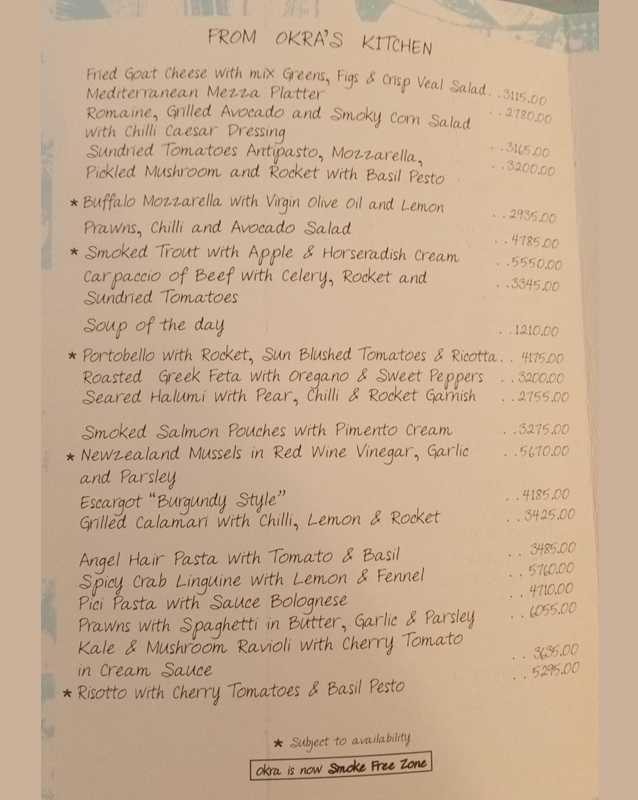 FROM OKRA'S KITCHEN
Fried Goat Cheese with mix Greens, Figs & Crisp Veal Salad. .3115.00
Mediterranean Mezza Platter ..2780.00
Romaine, Grilled Avocado and Smoky Corn Salad
with Chilli Caesar Dressing ..3165.00
Sundried Tomatoes Antipasto, Mozzarella,
Pickled Mushroom and Rocket with Basil Pesto ..3200.00
* Buffalo Mozzarella with Virgin Olive Oil and Lemon ..2935.00
Prawns, Chilli and Avocado Salad ..4785.00
* Smoked Trout with Apple & Horseradish Cream ..5550.00
Carpaccio of Beef with Celery, Rocket and ..3345.00
Sundried Tomatoes
Soup of the day ..1210.00
* Portobello with Rocket, Sun Blushed Tomatoes & Ricotta.. 4175.00
Roasted Greek Feta with Oregano & Sweet Peppers ..3200.00
Seared Halumi with Pear, Chilli & Rocket Garnish ..2755.00
Smoked Salmon Pouches with Pimento Cream ..3275.00
* Newzealand Mussels in Red Wine Vinegar, Garlic ..5670.00
and Parsley
Escargot "Burgundy Style" ..4185.00
Grilled Calamari with Chilli, Lemon & Rocket ..3425.00
Angel Hair Pasta with Tomato & Basil .. 3485.00
Spicy Crab Linguine with Lemon & Fennel .. 5760.00
Pici Pasta with Sauce Bolognese .. 4710.00
Prawns with Spaghetti in Butter, Garlic & Parsley .. 6055.00
Kale & Mushroom Ravioli with Cherry Tomato
in Cream Sauce .. 3635.00
* Risotto with Cherry Tomatoes & Basil Pesto .. 5295.00
* Subject to availability
okra is now Smoke Free Zone